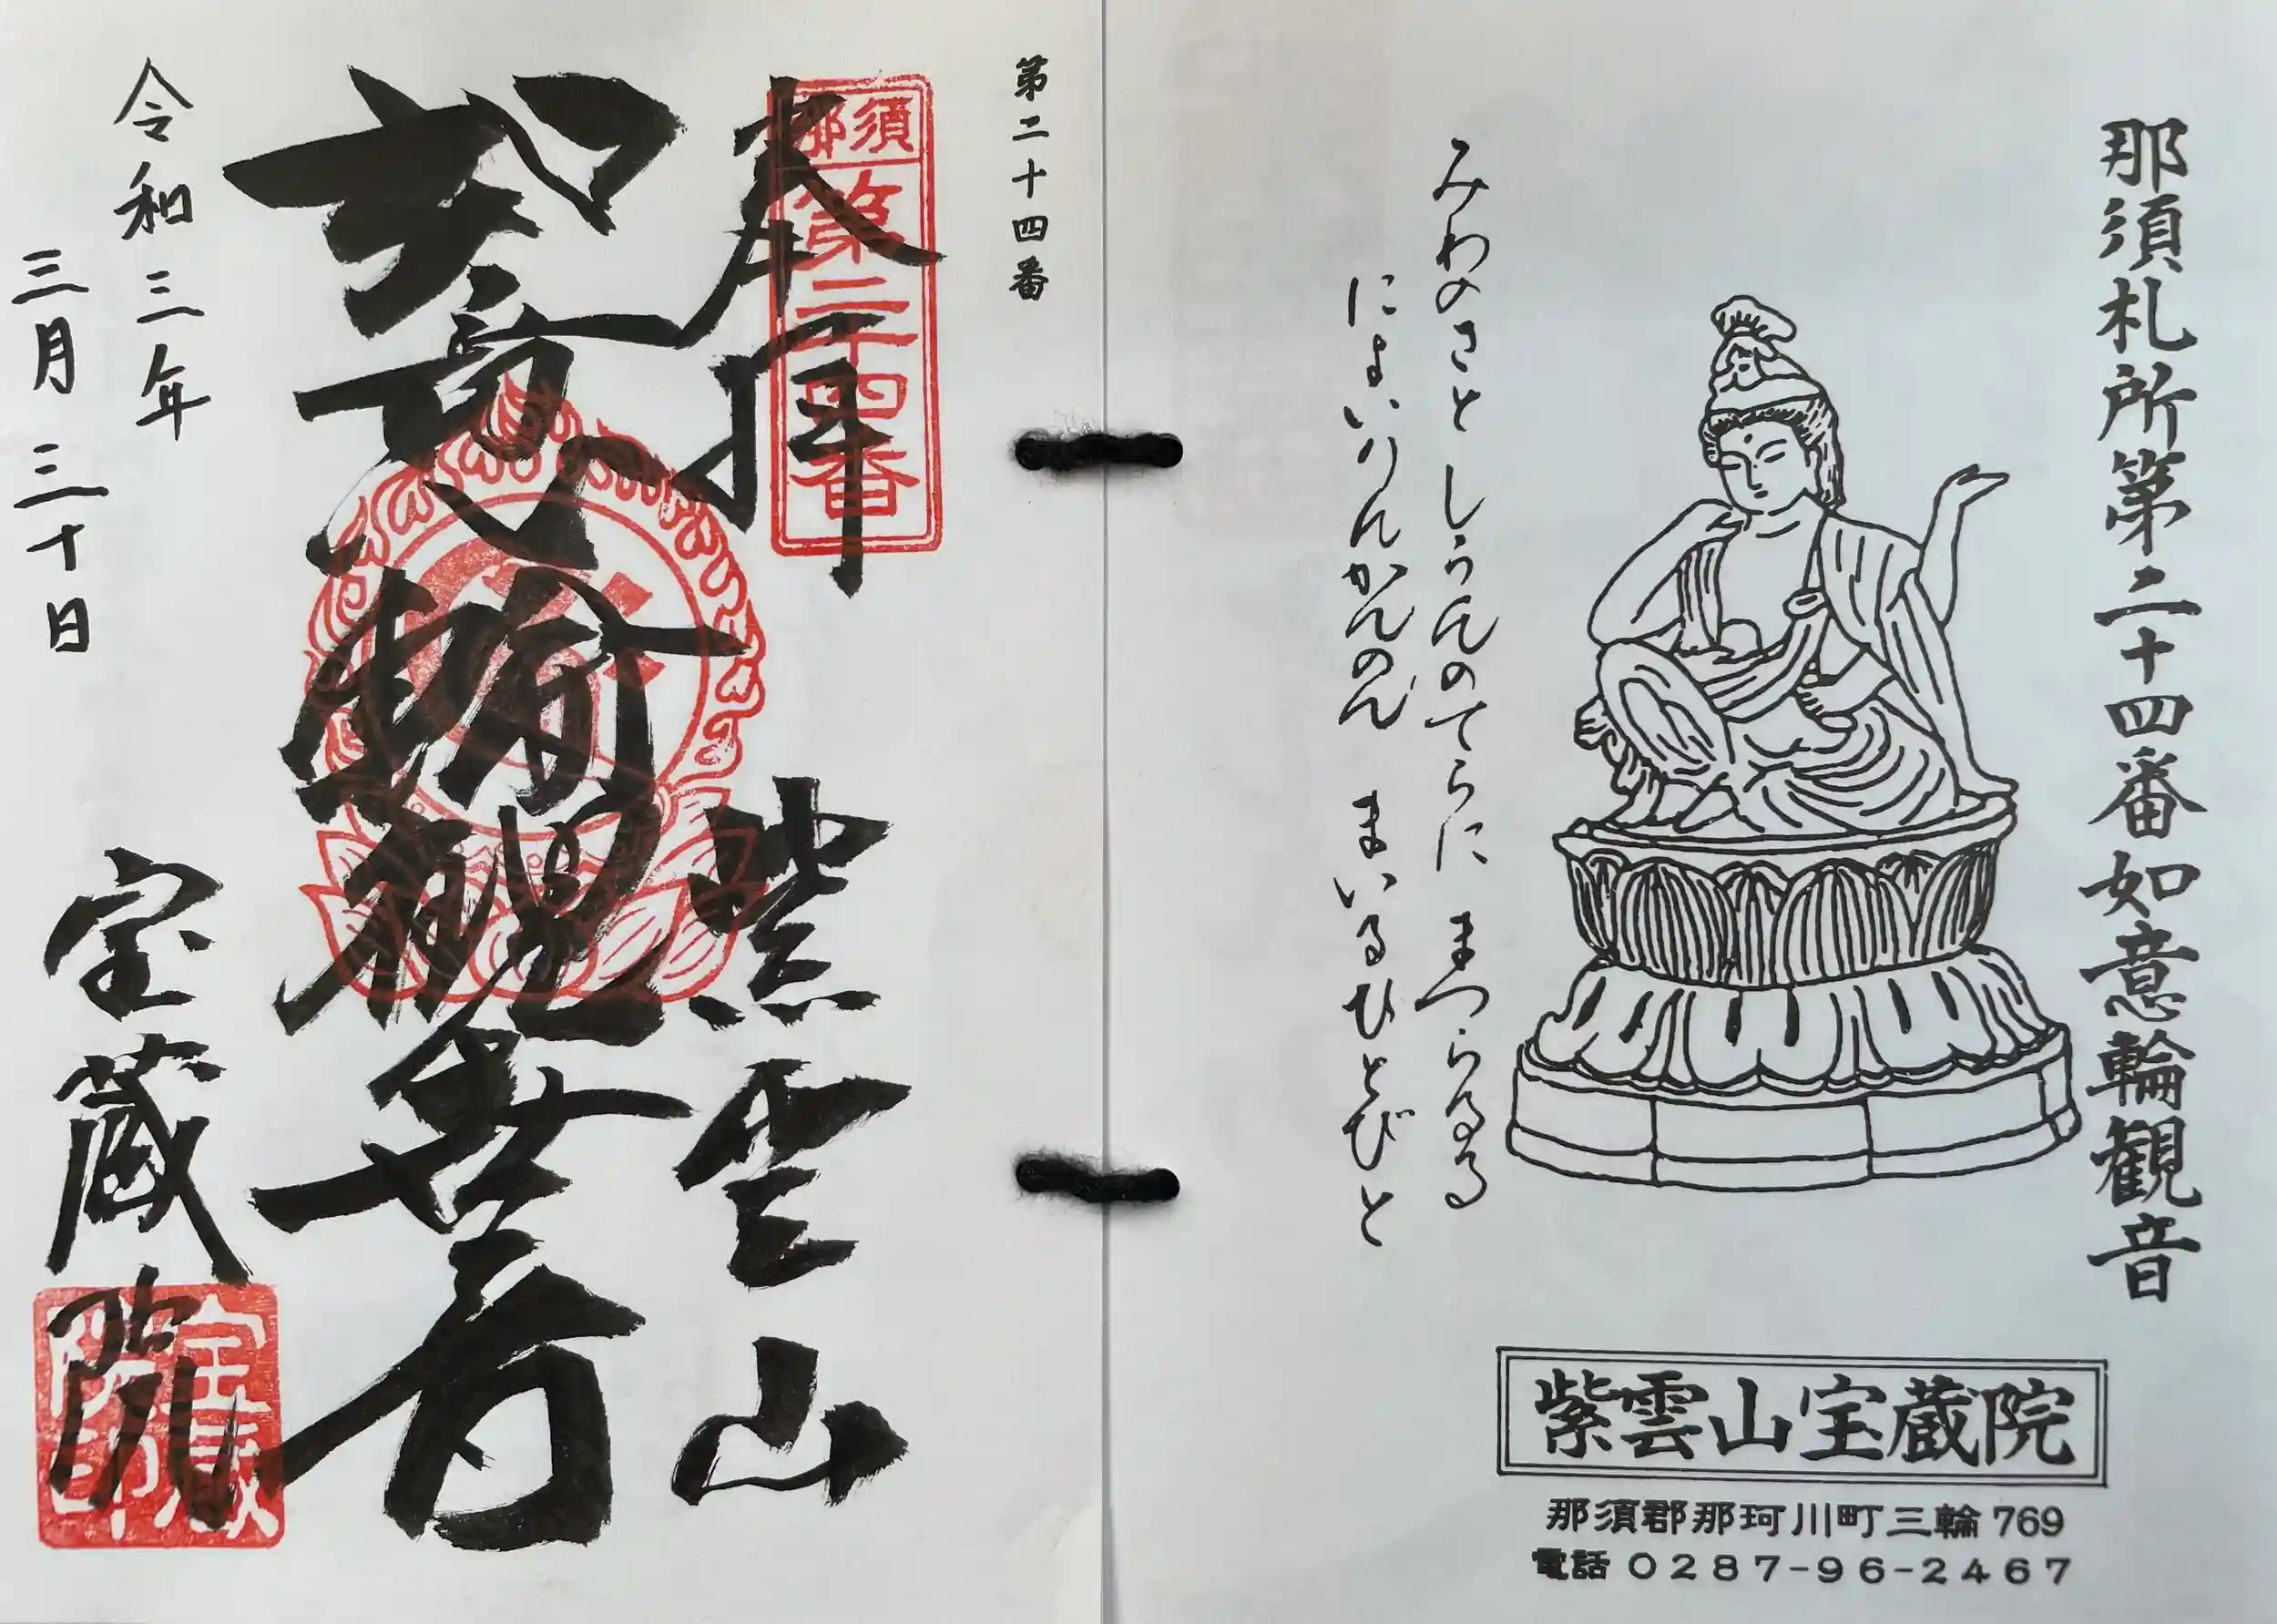 那須札所第二十四番如意輪観音
みわのさと しうんのてらに まつらるる
によいりんかんのん まいるひとびと
紫雲山宝蔵院
那須郡那珂川町三輪769
電話 0287-96-2467
第二十四番
那須
第二十四番
奉拝
紫雲山
如意輪観世音
令和三年
三月三十日
宝蔵院
宝蔵院印